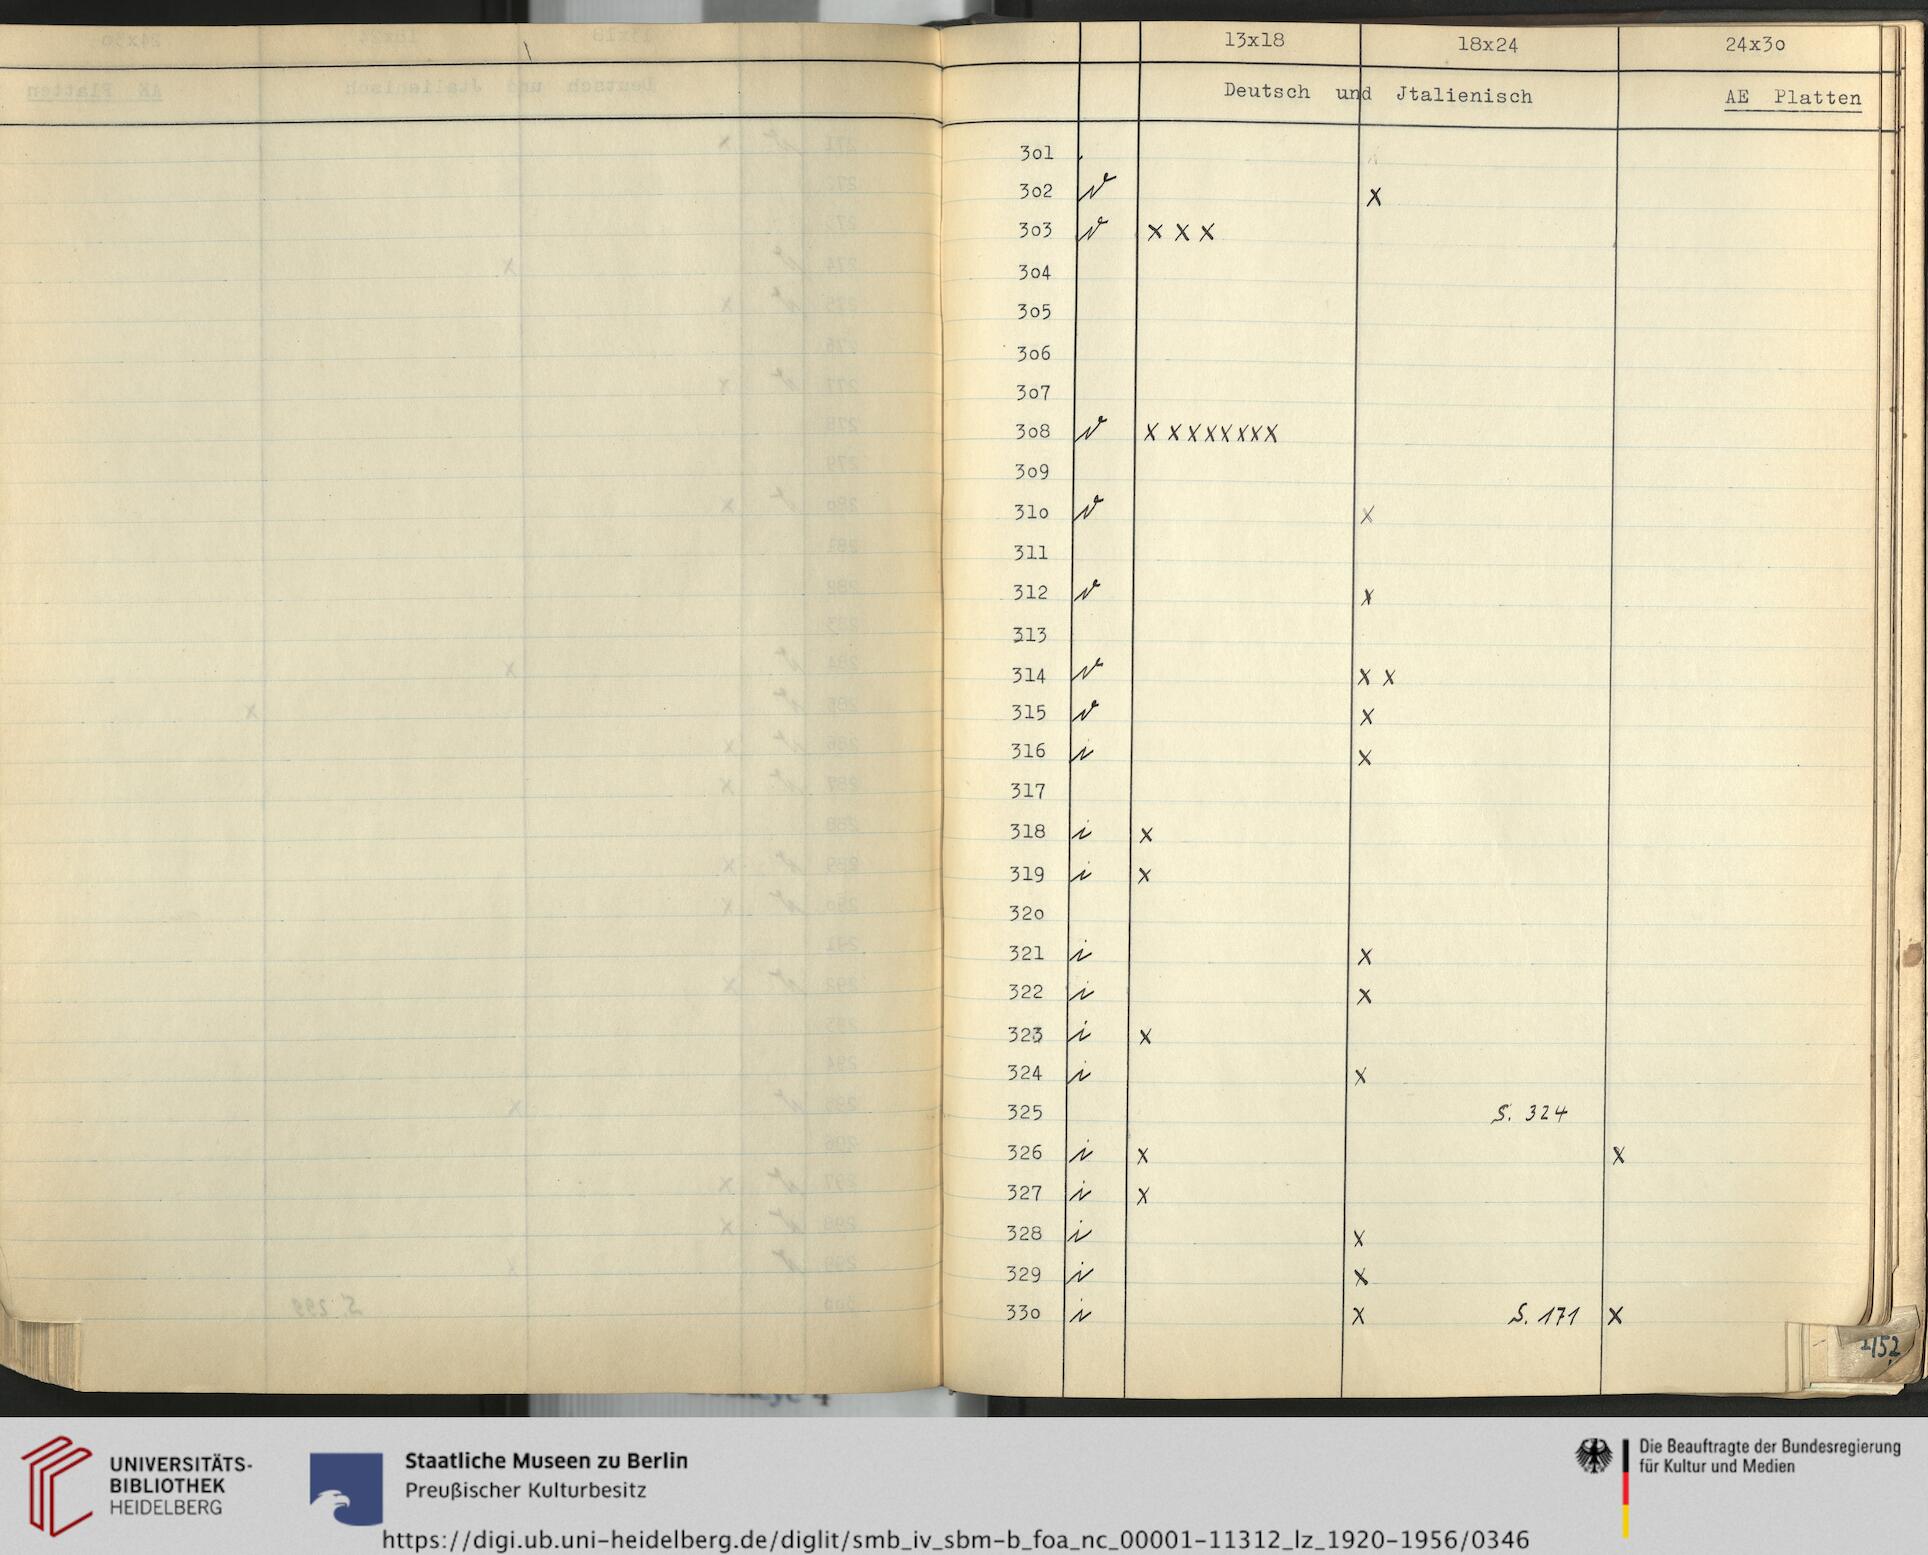 13x18 18x24 24x3o
Deutsch und Jtalienisch AE Platten
3o1
3o2 x
3o3 x x x
3o4
3o5
3o6
3o7
3o8 x x x x x x x x
3o9
31o x
311
312 x
313
314 x x
315 x
316 i x
317
318 i x
319 i x
32o
321 i x
322 i x
323 i x
324 i x
325 S. 324
326 i x x
327 i x
328 i x
329 i x
33o i x S. 171 x
UNIVERSITÄTS-
BIBLIOTHEK
HEIDELBERG
Staatliche Museen zu Berlin
Preußischer Kulturbesitz
Die Beauftragte der Bundesregierung
für Kultur und Medien
https://digi.ub.uni-heidelberg.de/diglit/smb_iv_sbm-b_foa_nc_00001-11312_lz_1920-1956/0346